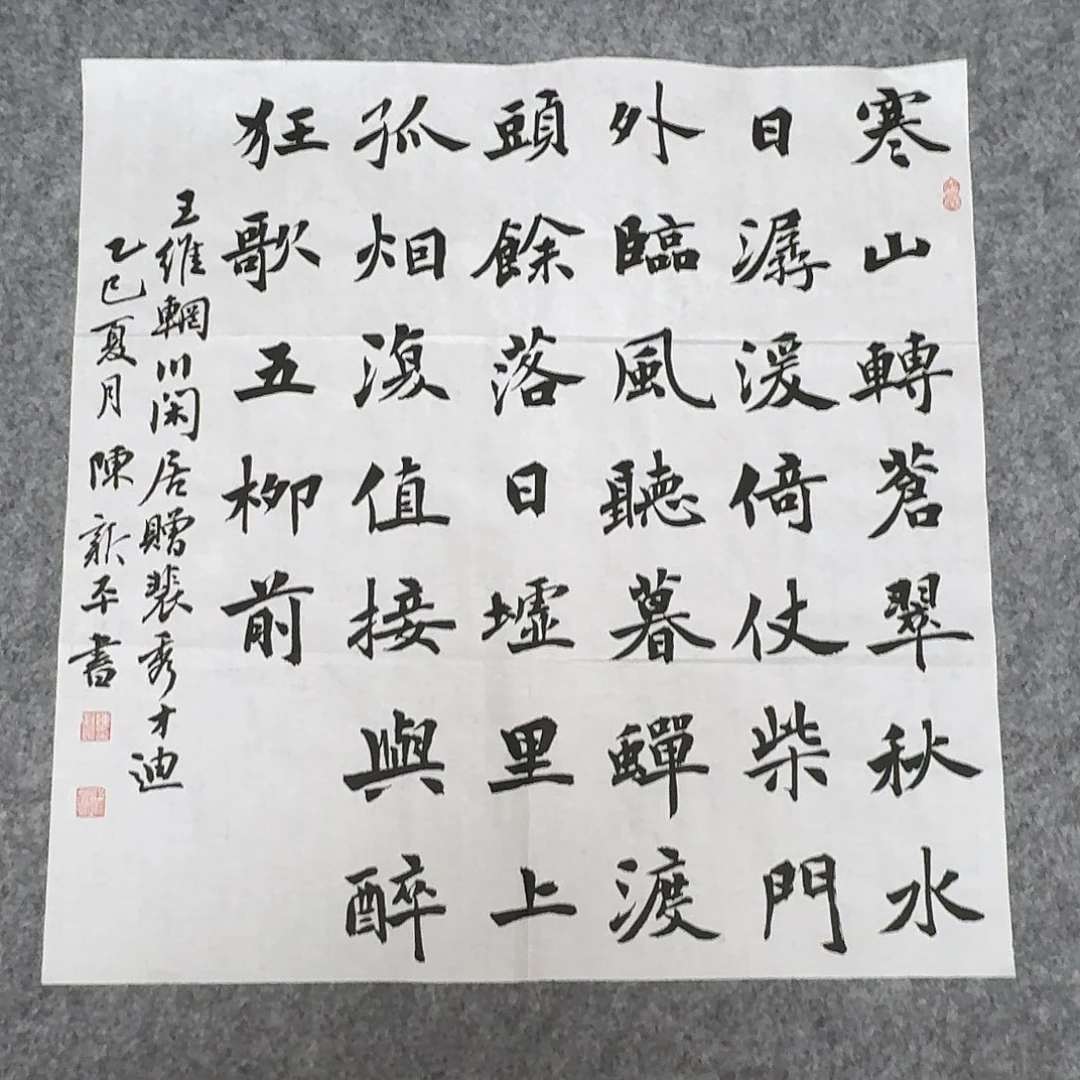 寒山轉蒼翠秋水
日潺湲倚仗柴門
外臨風聽暮蟬渡
頭餘落日墟里上
孤烟復值接輿醉
狂歌五柳前
王維輞川閑居贈裴秀才迪
乙巳夏月陳新平書